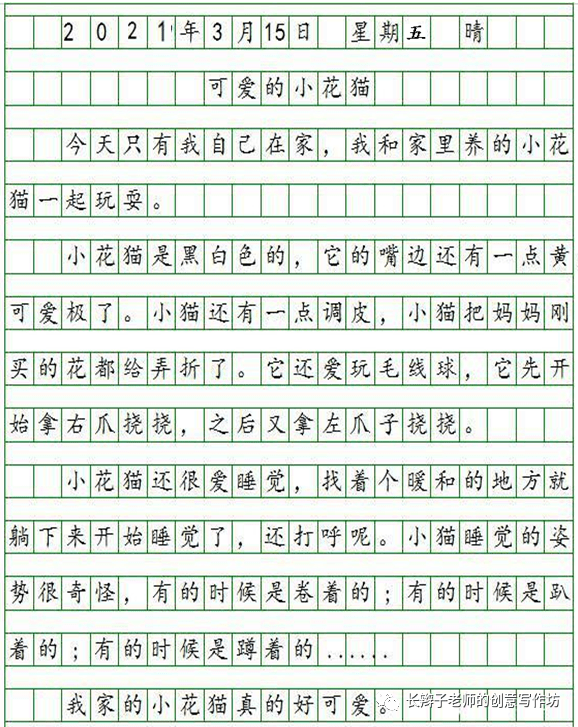 2021年3月15日 星期五 晴
可爱的小花猫
今天只有我自己在家，我和家里养的小花
猫一起玩耍。
小花猫是黑白色的，它的嘴边还有一点黄
可爱极了。小猫还有一点调皮，小猫把妈妈刚
买的花都给弄折了。它还爱玩毛线球，它先开
始拿右爪挠挠，之后又拿左爪子挠挠。
小花猫还很爱睡觉，找着个暖和的地方就
躺下来开始睡觉了，还打呼呢。小猫睡觉的姿
势很奇怪，有的时候是卷着的；有的时候是趴
着的；有的时候是蹲着的......
我家的小花猫真的好可爱。
长辫子老师的创意写作坊